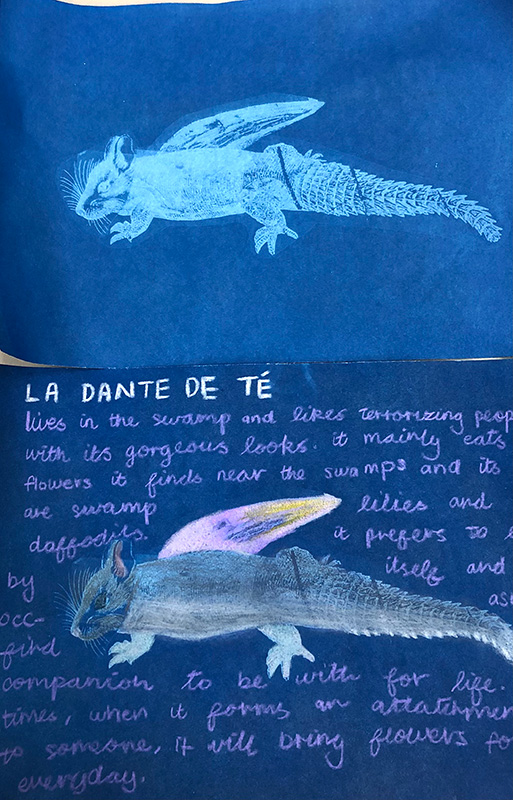 LA DANTE DE TÉ
lives in the swamp and likes terrorizing peop
with its gorgeous looks. it mainly eats
flowers it finds near the swamps and its
are swamp lilies and
daffodils. it prefers to
by itself and
occ- as
find
companion to be with for life.
times, when it forms an attatchmen
to someone, it will bring flowers fo
everyday.